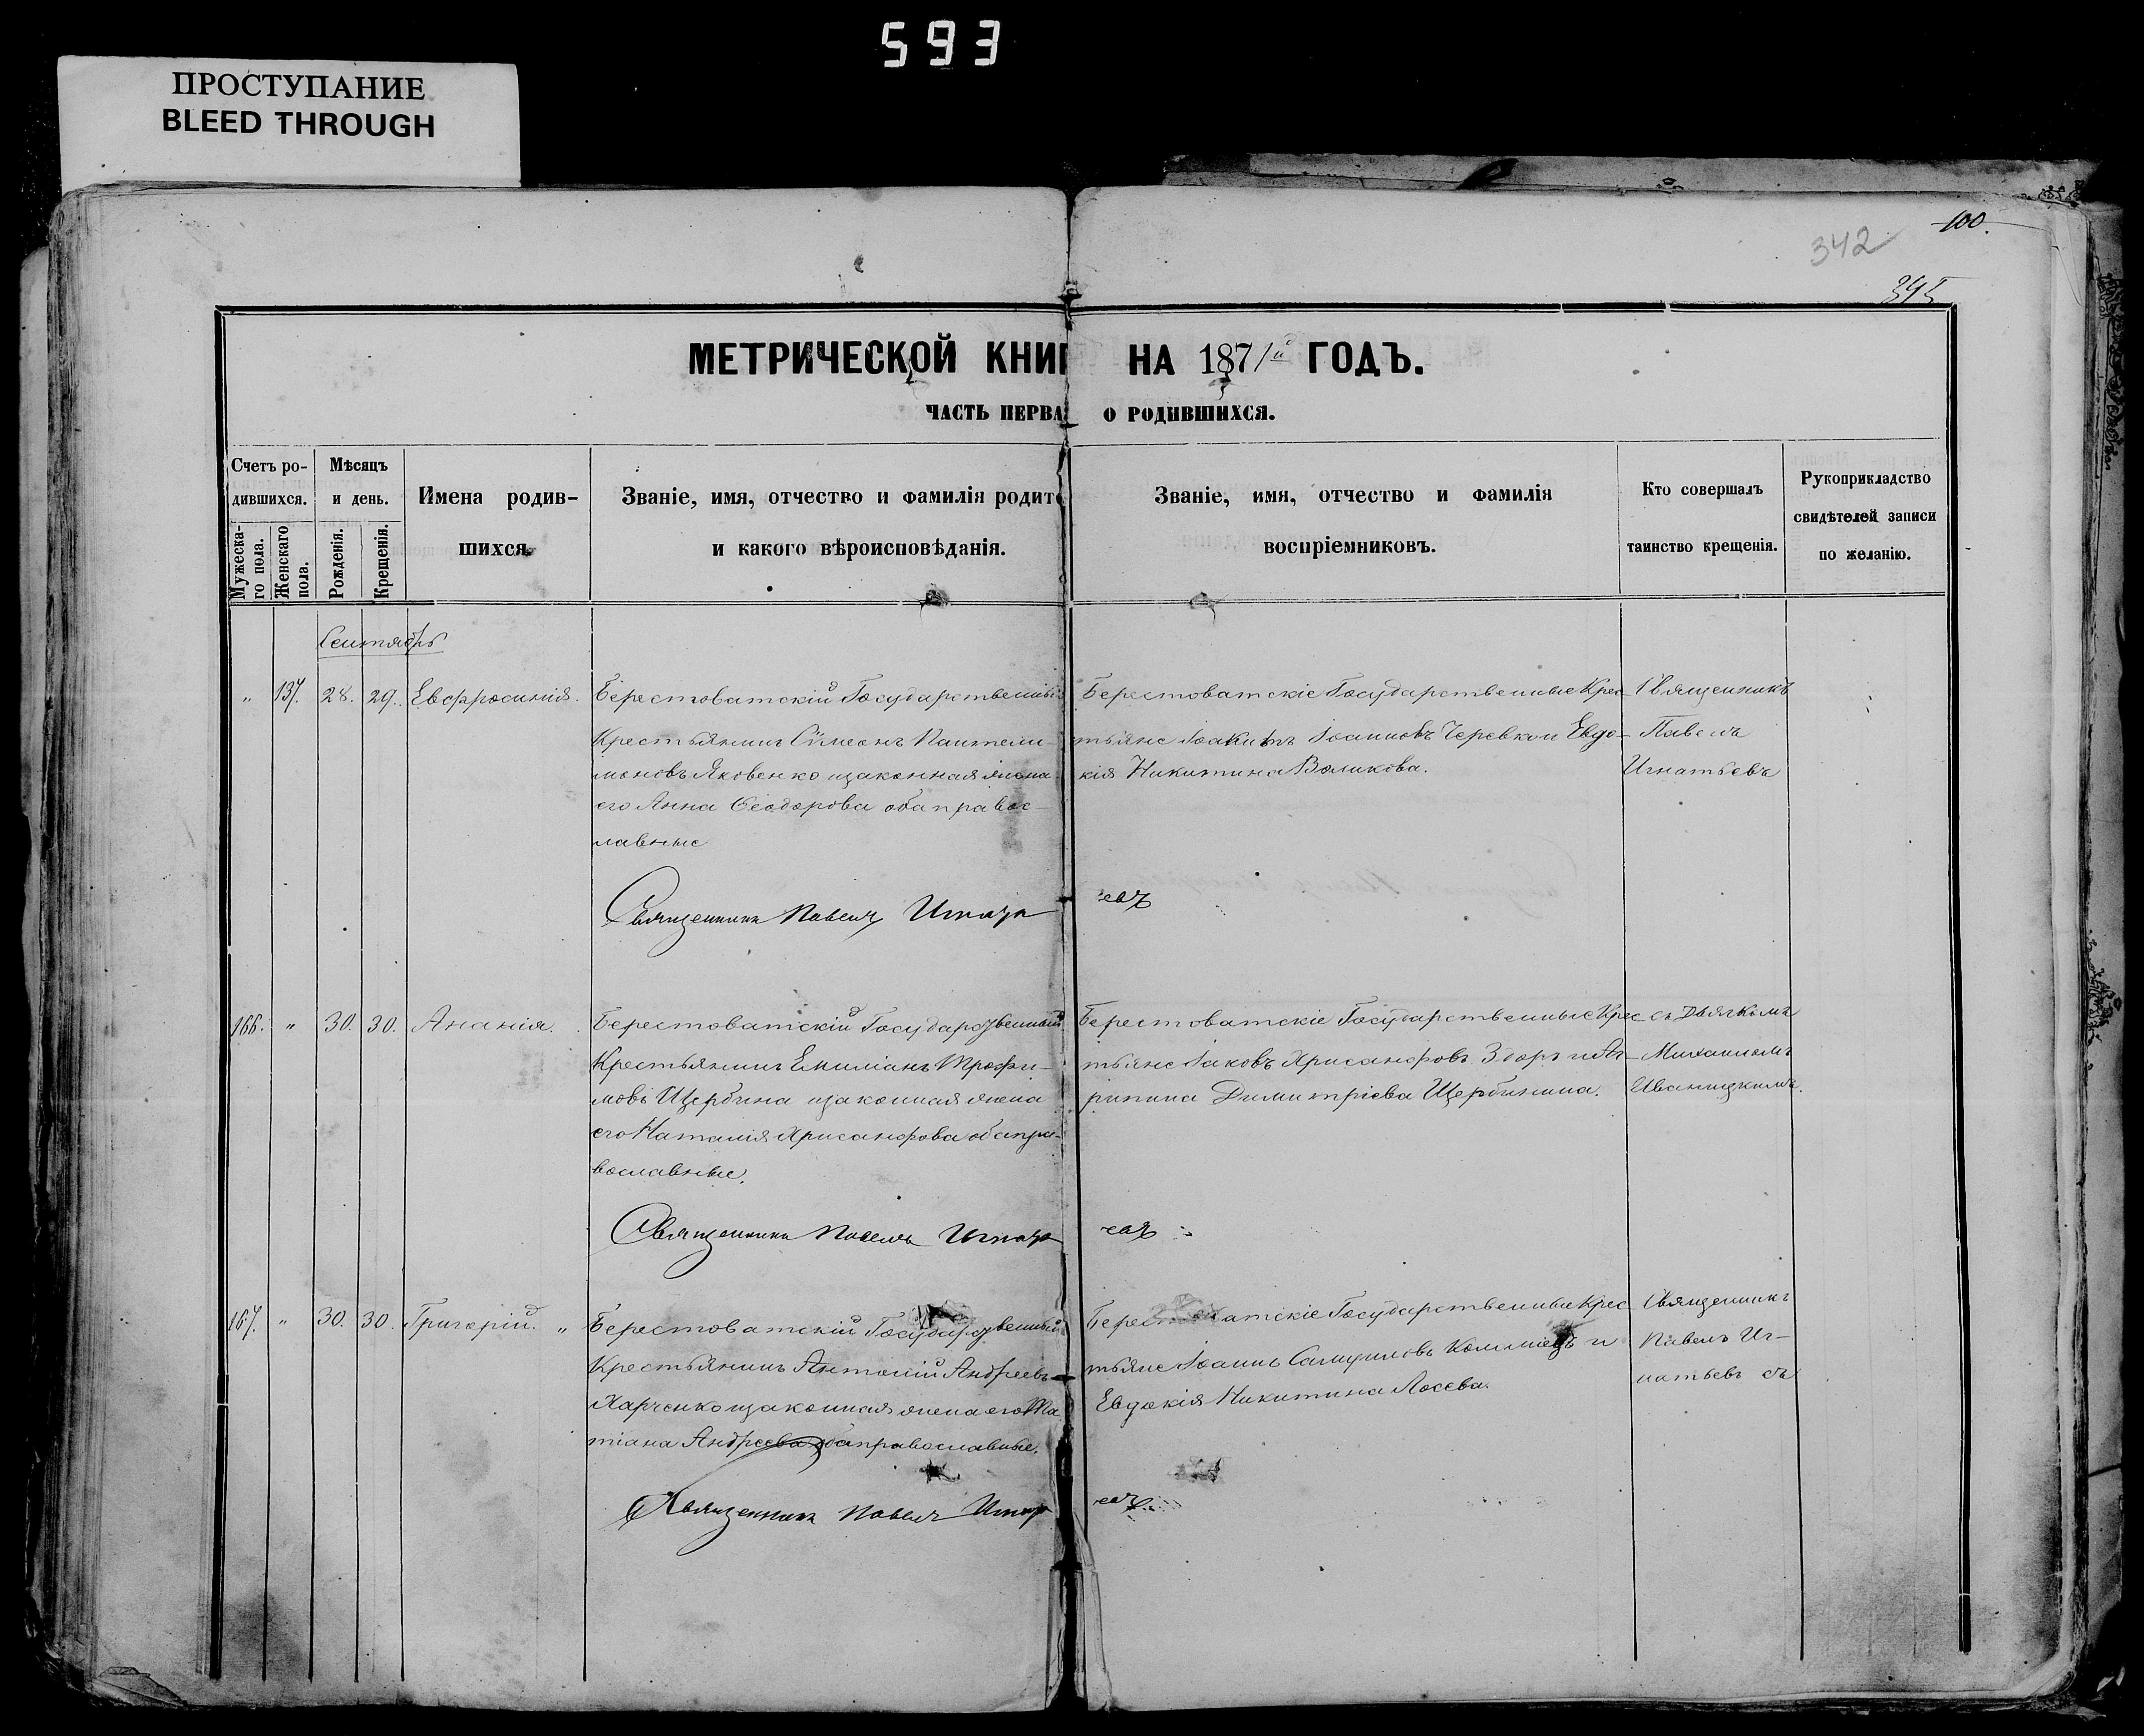 593
ПРОСТУПАНИЕ
BLEED THROUGH
100.
342
МЕТРИЧЕСКОЙ КНИГ НА 1871й ГОДЪ.
ЧАСТЬ ПЕРВА О РОДИВШИХСЯ.
Счетъ родившихся.
Мужескаго пола.
Женскаго пола.
Мѣсяцъ и день.
Рожденія.
Крещенія.
Имена родившихся.
Званіе, имя, отчество и фамилія родит
и какого вѣроисповѣданія.
Званіе, имя, отчество и фамилія
воспріемниковъ.
Кто совершалъ
таинство крещенія.
Рукоприкладство
свидѣтелей записи
по желанію.
Сентябрь
" 137. 28. 29. Евфросинія.
Берестоватскій Государственный
Крестьянинъ Сѵмеонъ Пантели-
моновъ Яковенко изаконная жена
его Анна Ѳеодорова оба правос-
лавные
Берестоватскіе Государственные Крес-
тьяне Іоакимъ Іоанновъ Черевко и Евдо-
кія Никитина Воликова.
Священникъ
Павелъ
Игнатьевъ
Священникъ Павелъ Игнатьевъ
166. " 30. 30. Ананія.
Берестоватскій Государственный
Крестьянинъ Емиліанъ Трофи-
мовъ Щербина изаконная жена
его Наталія Хрисанфова оба пра-
вославные.
Берестоватскіе Государственные Крес-
тьяне Іаковъ Хрисанфовъ Здоръ и Аг-
рипина Димитріева Щербинина.
съ Дьячкомъ
Михаиломъ
Иваницкимъ.
Священникъ Павелъ Игнатьевъ
167. " 30. 30. Григорій. "
Берестоватскій Государственный
Крестьянинъ Антоній Андреевъ
Харченко изаконная жена его Та
тіана Андреева оба православные.
Берестоватскіе Государственные Крес
тьяне Іоаннъ Самуиловъ Коломіецъ и
Евдокія Никитина Лосева.
Священникъ
Павелъ Иг-
натьевъ съ
Священникъ Павелъ Игнатьевъ